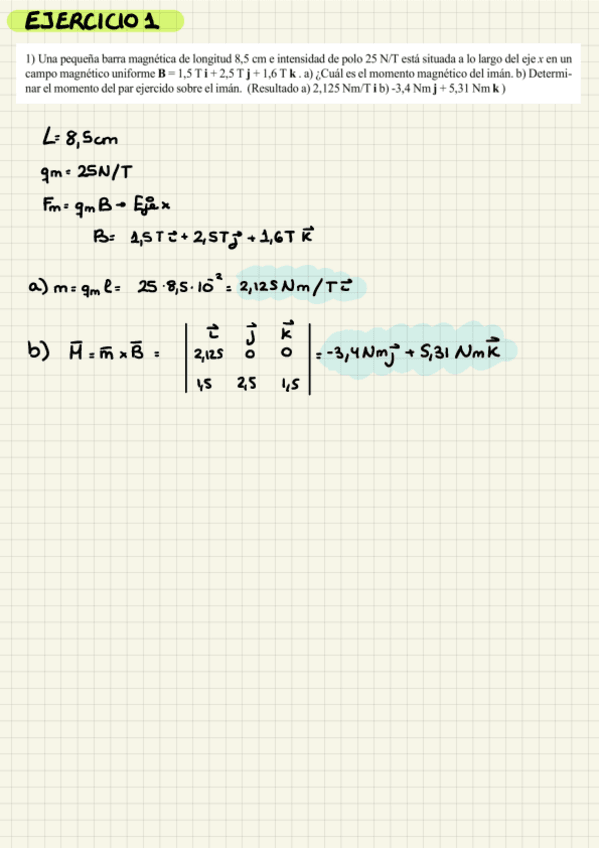 EJERCICIO 1
1) Una pequeña barra magnética de longitud 8,5 cm e intensidad de polo 25 N/T está situada a lo largo del eje x en un
campo magnético uniforme B = 1,5 T i + 2,5 T j + 1,6 T k . a) ¿Cuál es el momento magnético del imán. b) Determi-
nar el momento del par ejercido sobre el imán. (Resultado a) 2,125 Nm/T i b) -3,4 Nm j + 5,31 Nm k )
L= 8,5cm
qm = 25N/T
Fm = qm B → Eje x
B= 1,5 T i⃗ + 2,5 T j⃗ + 1,6 T k⃗
a) m = qm l = 25 · 8,5 · 10⁻² = 2,125 Nm/T i⃗
b) M̄ = m̄ x B̄ = | i⃗ j⃗ k⃗ |
2,125 0 0 = -3,4 Nm j⃗ + 5,31 Nm k⃗
1,5 2,5 1,5